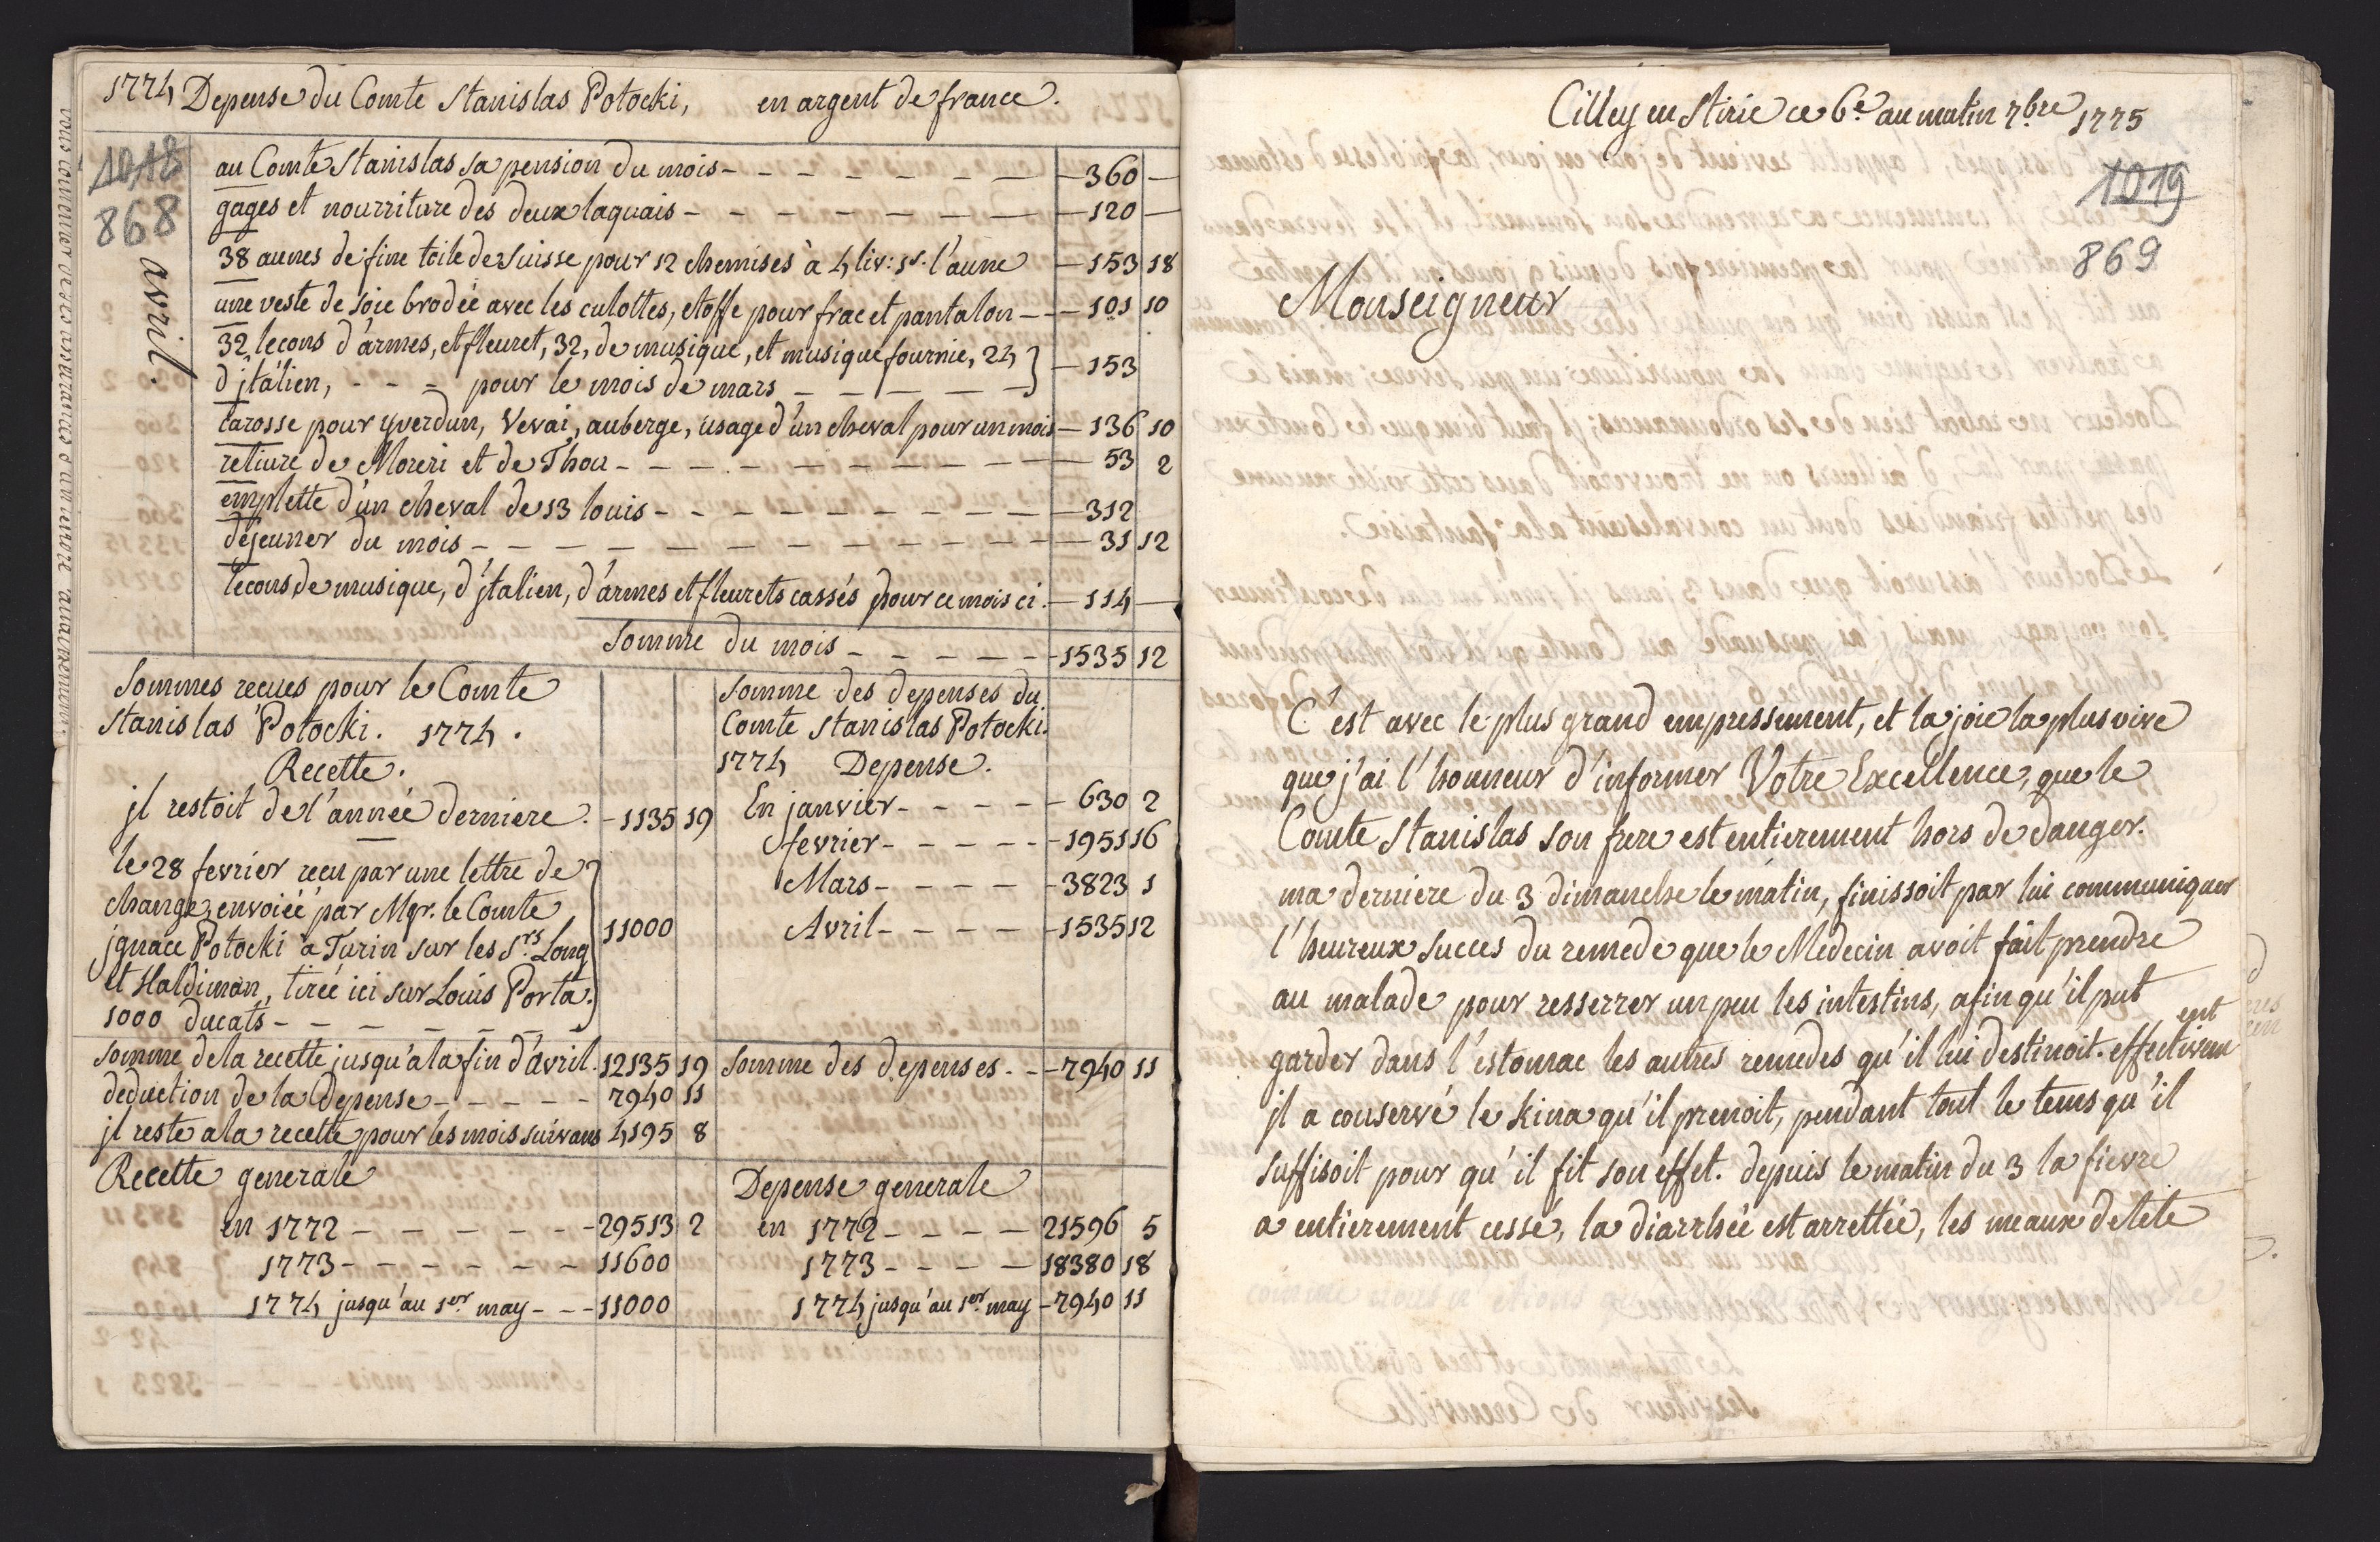 1774 Depense du Comte Stanislas Potocki, en argent de france.
1018
868
avril.
au Comte Stanislas sa pension du mois - - - - - - - 360 -
gages et nourriture des deux laquais - - - - - - - 120 -
38 aunes de fine toile de Suisse pour 12 chemises à 4 liv: 1s. l'aune - 153 18
une veste de soie brodée avec les culottes, etoffe pour frac et pantalon - - 101 10
32, lecons d'armes, et fleuret, 32, de musique, et musique fournie, 24 } - 153
d'jtalien, - - - pour le mois de mars - - - - -
carosse pour yverdun, Vevai, auberge, usage d'un cheval pour un mois - 136 10
reliure de Moreri et de Thou - - - - - - - - - 53 2
emplette d'un cheval de 13 louis - - - - - - - - - 312
dejeuner du mois - - - - - - - - - - - 31 12
lecons de musique, d'jtalien, d'armes et fleurets cassés pour ce mois ci. - 114 -
Somme du mois - - - - - - 1535 12
Sommes recues pour le Comte
Stanislas Potocki. 1774.
Recette.
jl restoit de l'année derniere. - 1135 19
le 28 fevrier recu par une lettre de
change, envoiée par Mgr. le Comte
jgnace Potocki à Turin sur les Srs. Long } 11000
et Haldiman, tirée ici sur Louis Porta.
1000 ducats - - - - - - -
Somme de la recette jusqu'a la fin d'avril. 12135 19
deduction de la Depense - - - - - 7940 11
jl reste a la recette pour les mois suivans 4195 8
Somme des depenses du
Comte Stanislas Potocki.
1774 Depense.
En janvier - - - - - 630 2
fevrier - - - - - 1951 16
Mars - - - - - 3823 1
Avril - - - - - 1535 12
Somme des depenses. - - 7940 11
Recette generale
en 1772 - - - - - - 29513 2
1773 - - - - - - 11600
1774 jusqu'au 1er. may - - - 11000
Depense generale
en 1772 - - - - 21596 5
1773 - - - - 18380 18
1774 jusqu'au 1er. may - 7940 11
Cilley en Stirie ce 6e. au matin 7bre 1775
1019
869
Monseigneur
C'est avec le plus grand empressement, et la joie la plus vive
que j'ai l'honneur d'informer Votre Excellence, que le
Comte Stanislas son frere est entierement hors de danger.
ma derniere du 3 dimanche le matin, finissoit par lui communiquer
l'heureux succes du remede que le Medecin avoit fait prendre
au malade pour resserrer un peu les intestins, afin qu'il put
garder dans l'estomac les autres remedes qu'il lui destinoit. effectivement
jl a conservé le kina qu'il prenoit, pendant tout le tems qu'il
suffisoit pour qu'il fit son effet. depuis le matin du 3 la fievre
a entierement cessé, la diarrhée est arrettée, les meaux de tete